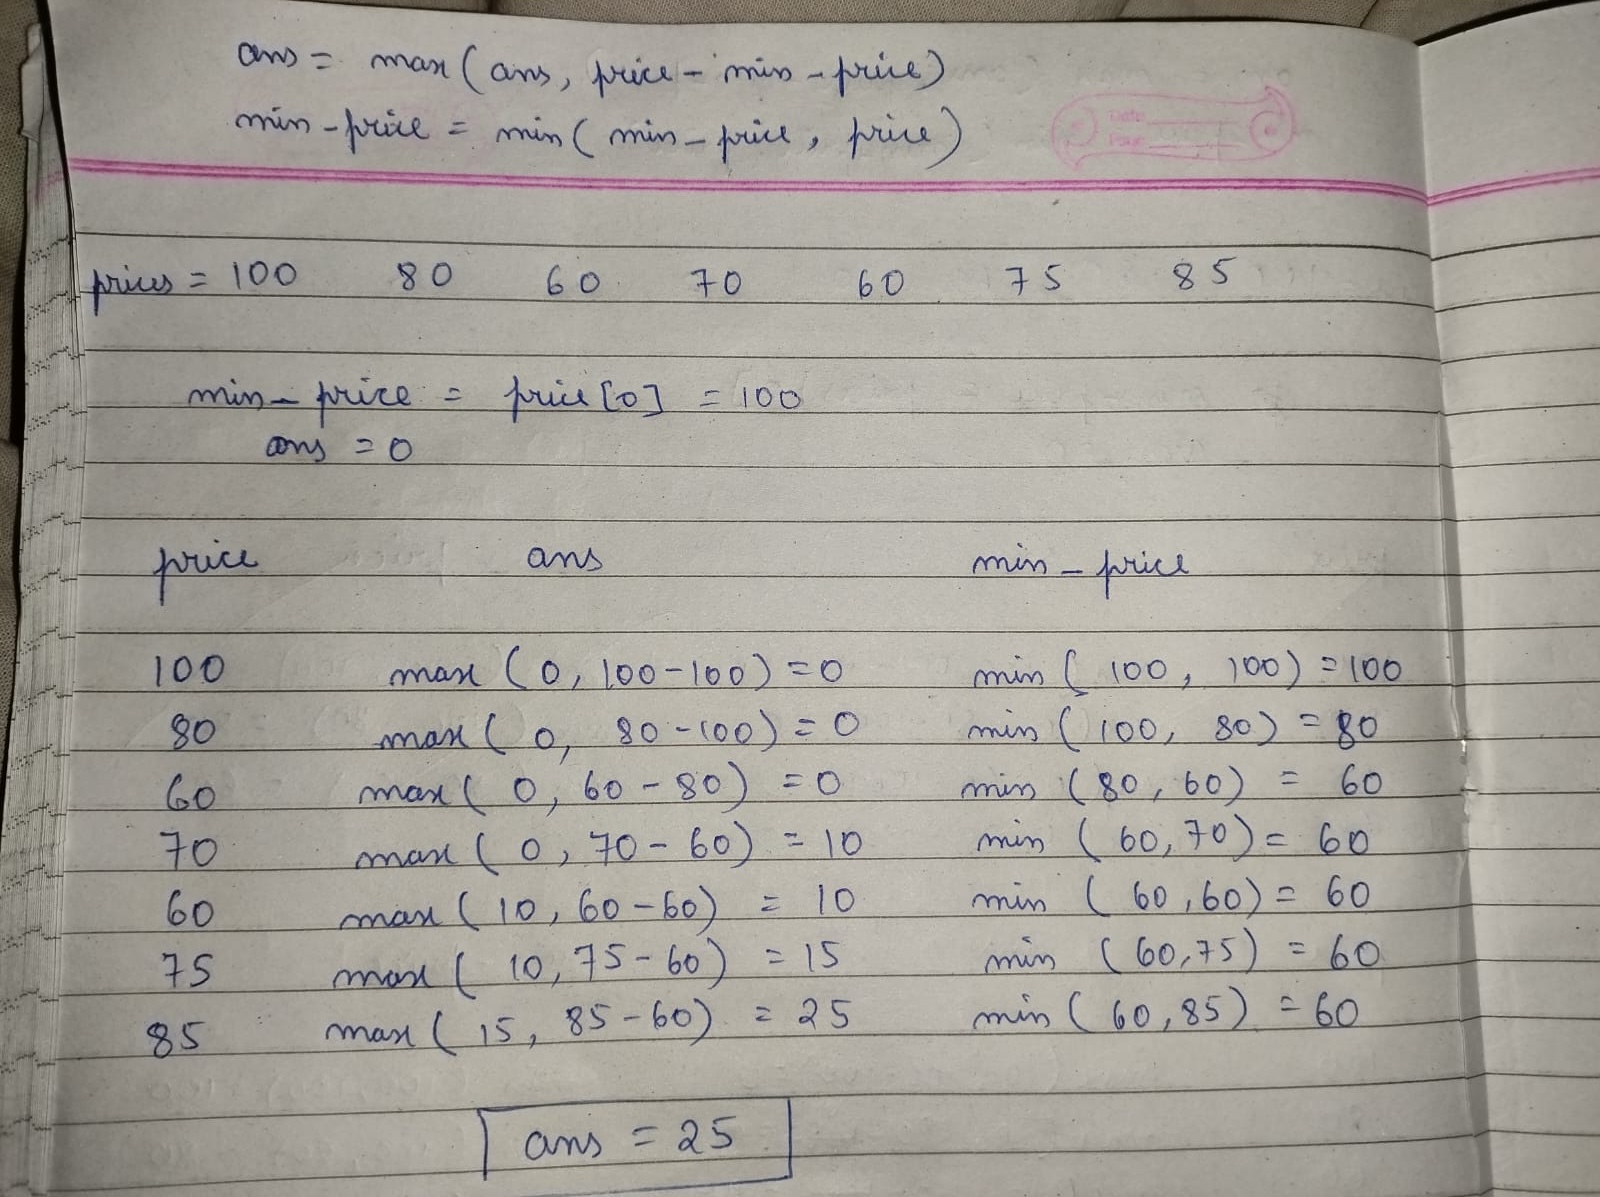 ans = max(ans, price - min-price)
min-price = min(min-price, price)
Date
prices = 100 80 60 70 60 75 85
min-price = price[0] = 100
ans = 0
price ans min-price
100 max(0, 100-100) = 0 min(100, 100) = 100
80 max(0, 80-100) = 0 min(100, 80) = 80
60 max(0, 60-80) = 0 min(80, 60) = 60
70 max(0, 70-60) = 10 min(60, 70) = 60
60 max(10, 60-60) = 10 min(60, 60) = 60
75 max(10, 75-60) = 15 min(60, 75) = 60
85 max(15, 85-60) = 25 min(60, 85) = 60
ans = 25